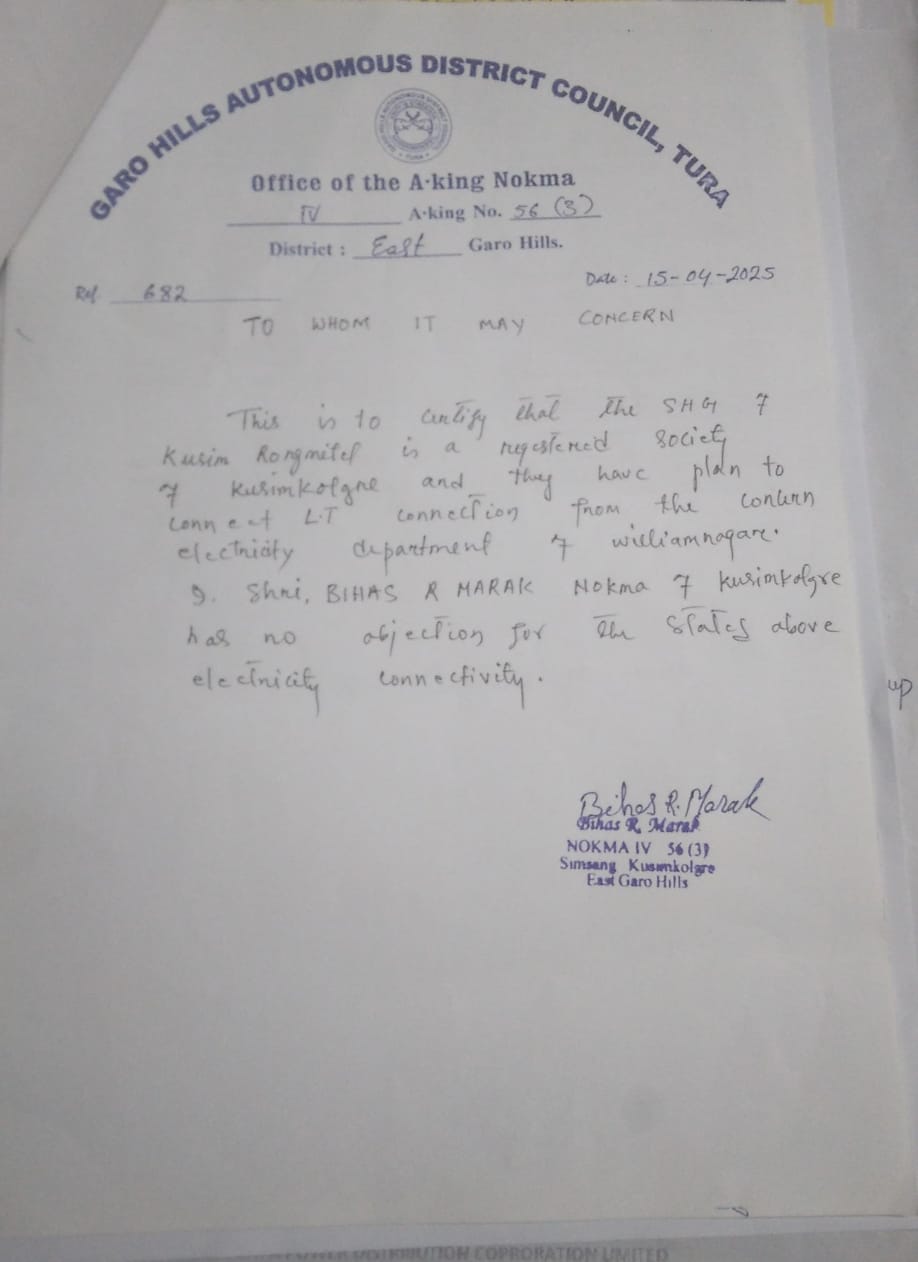 GARO HILLS AUTONOMOUS DISTRICT COUNCIL, TURA
Office of the A·king Nokma
IV A·king No. 56 (3)
District : East Garo Hills.
Date : 15-04-2025
Ref 682
TO WHOM IT MAY CONCERN
This is to certify that the SHG of
Kusim Rongmitel is a registered society
of Kusimkolgre and they have plan to
connect L.T connection from the concern
electricity department of williamnagar.
I. Shri, BIHAS R MARAK Nokma of Kusimkolgre
has no objection for the states above
electricity connectivity.
Bihas R. Marak
Bihas R. Marak
NOKMA IV 56 (3)
Simsang Kusimkolgre
East Garo Hills
up
POWER DISTRIBUTION COPRORATION LIMITED